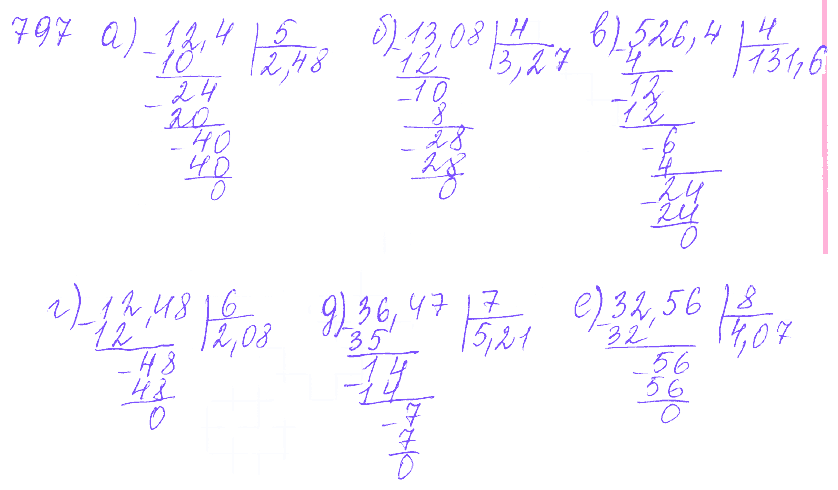 797 а) -12,4 | 5 б) -13,08 | 4 в) -526,4 | 4
10 | 2,48 12 | 3,27 4 | 131,6
-24 -10 -12
20 8 12
-40 -28 -6
40 28 4
0 0 -24
24
0
г) -12,48 | 6 д) -36,47 | 7 е) -32,56 | 8
12 | 2,08 35 | 5,21 32 | 4,07
-48 -14 -56
48 14 56
0 -7 0
7
0